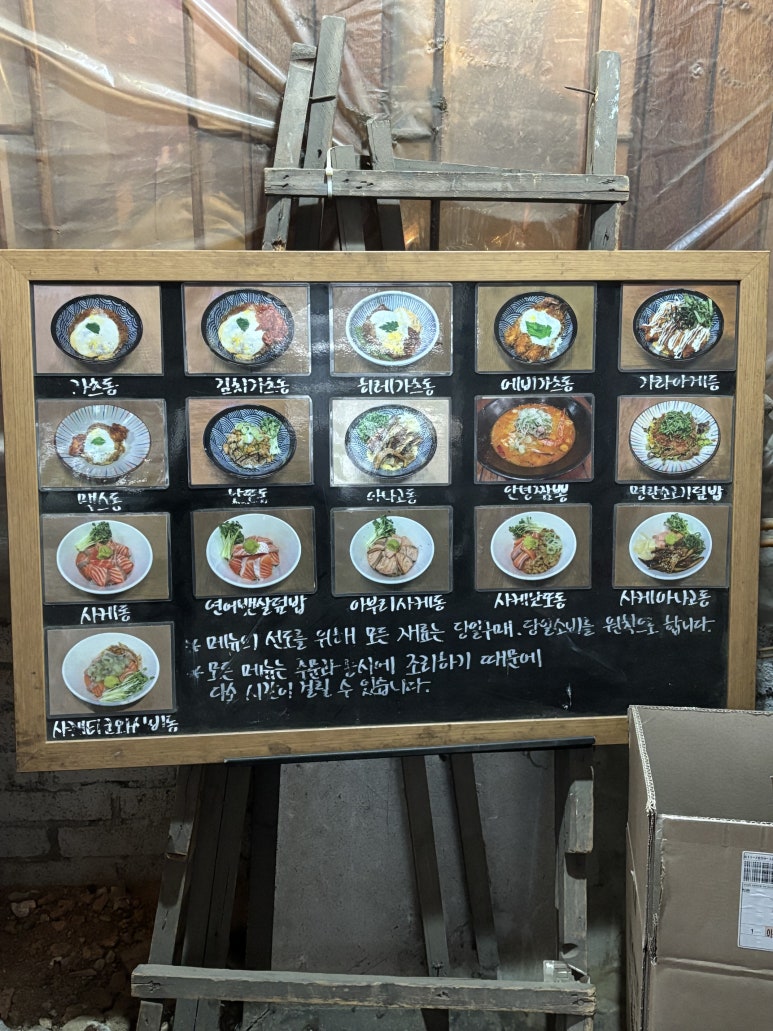 가츠동 김치가츠동 히레가츠동 에비가츠동 가라아게동
맥스동 낫또동 아나고동 안녕짬뽕 명란소라덮밥
사케동 연어뱃살덮밥 아부리사케동 사케낫또동 사케아나고동
※ 메뉴의 선도를 위해 모든 재료는 당일구매, 당일소비를 원칙으로 합니다.
※ 모든 메뉴는 주문과 동시에 조리하기 때문에
다소 시간이 걸릴 수 있습니다.